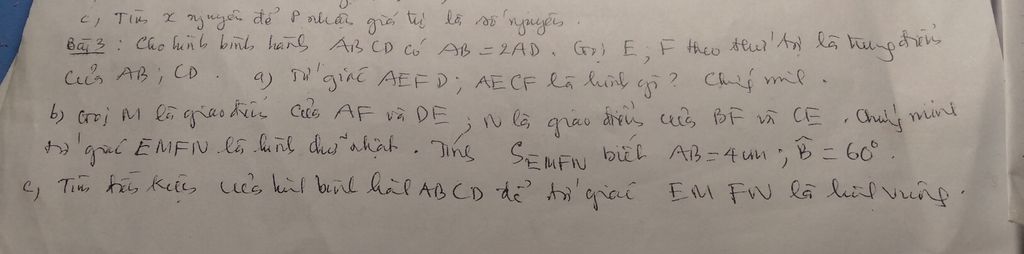 c, Tìm x nguyên để P nhận giá trị là số nguyên.
Bài 3 : Cho hình bình hành ABCD có AB = 2AD. Gọi E; F theo thứ tự là trung điểm
của AB; CD. a) Tứ giác AEFD; AECF là hình gì? Chứng minh.
b) Gọi M là giao điểm của AF và DE; N là giao điểm của BF và CE. Chứng minh
tứ giác EMFN là hình chữ nhật. Tính S_EMFN biết AB = 4cm; B̂ = 60°.
c, Tìm điều kiện của hình bình hành ABCD để tứ giác EMFN là hình vuông.